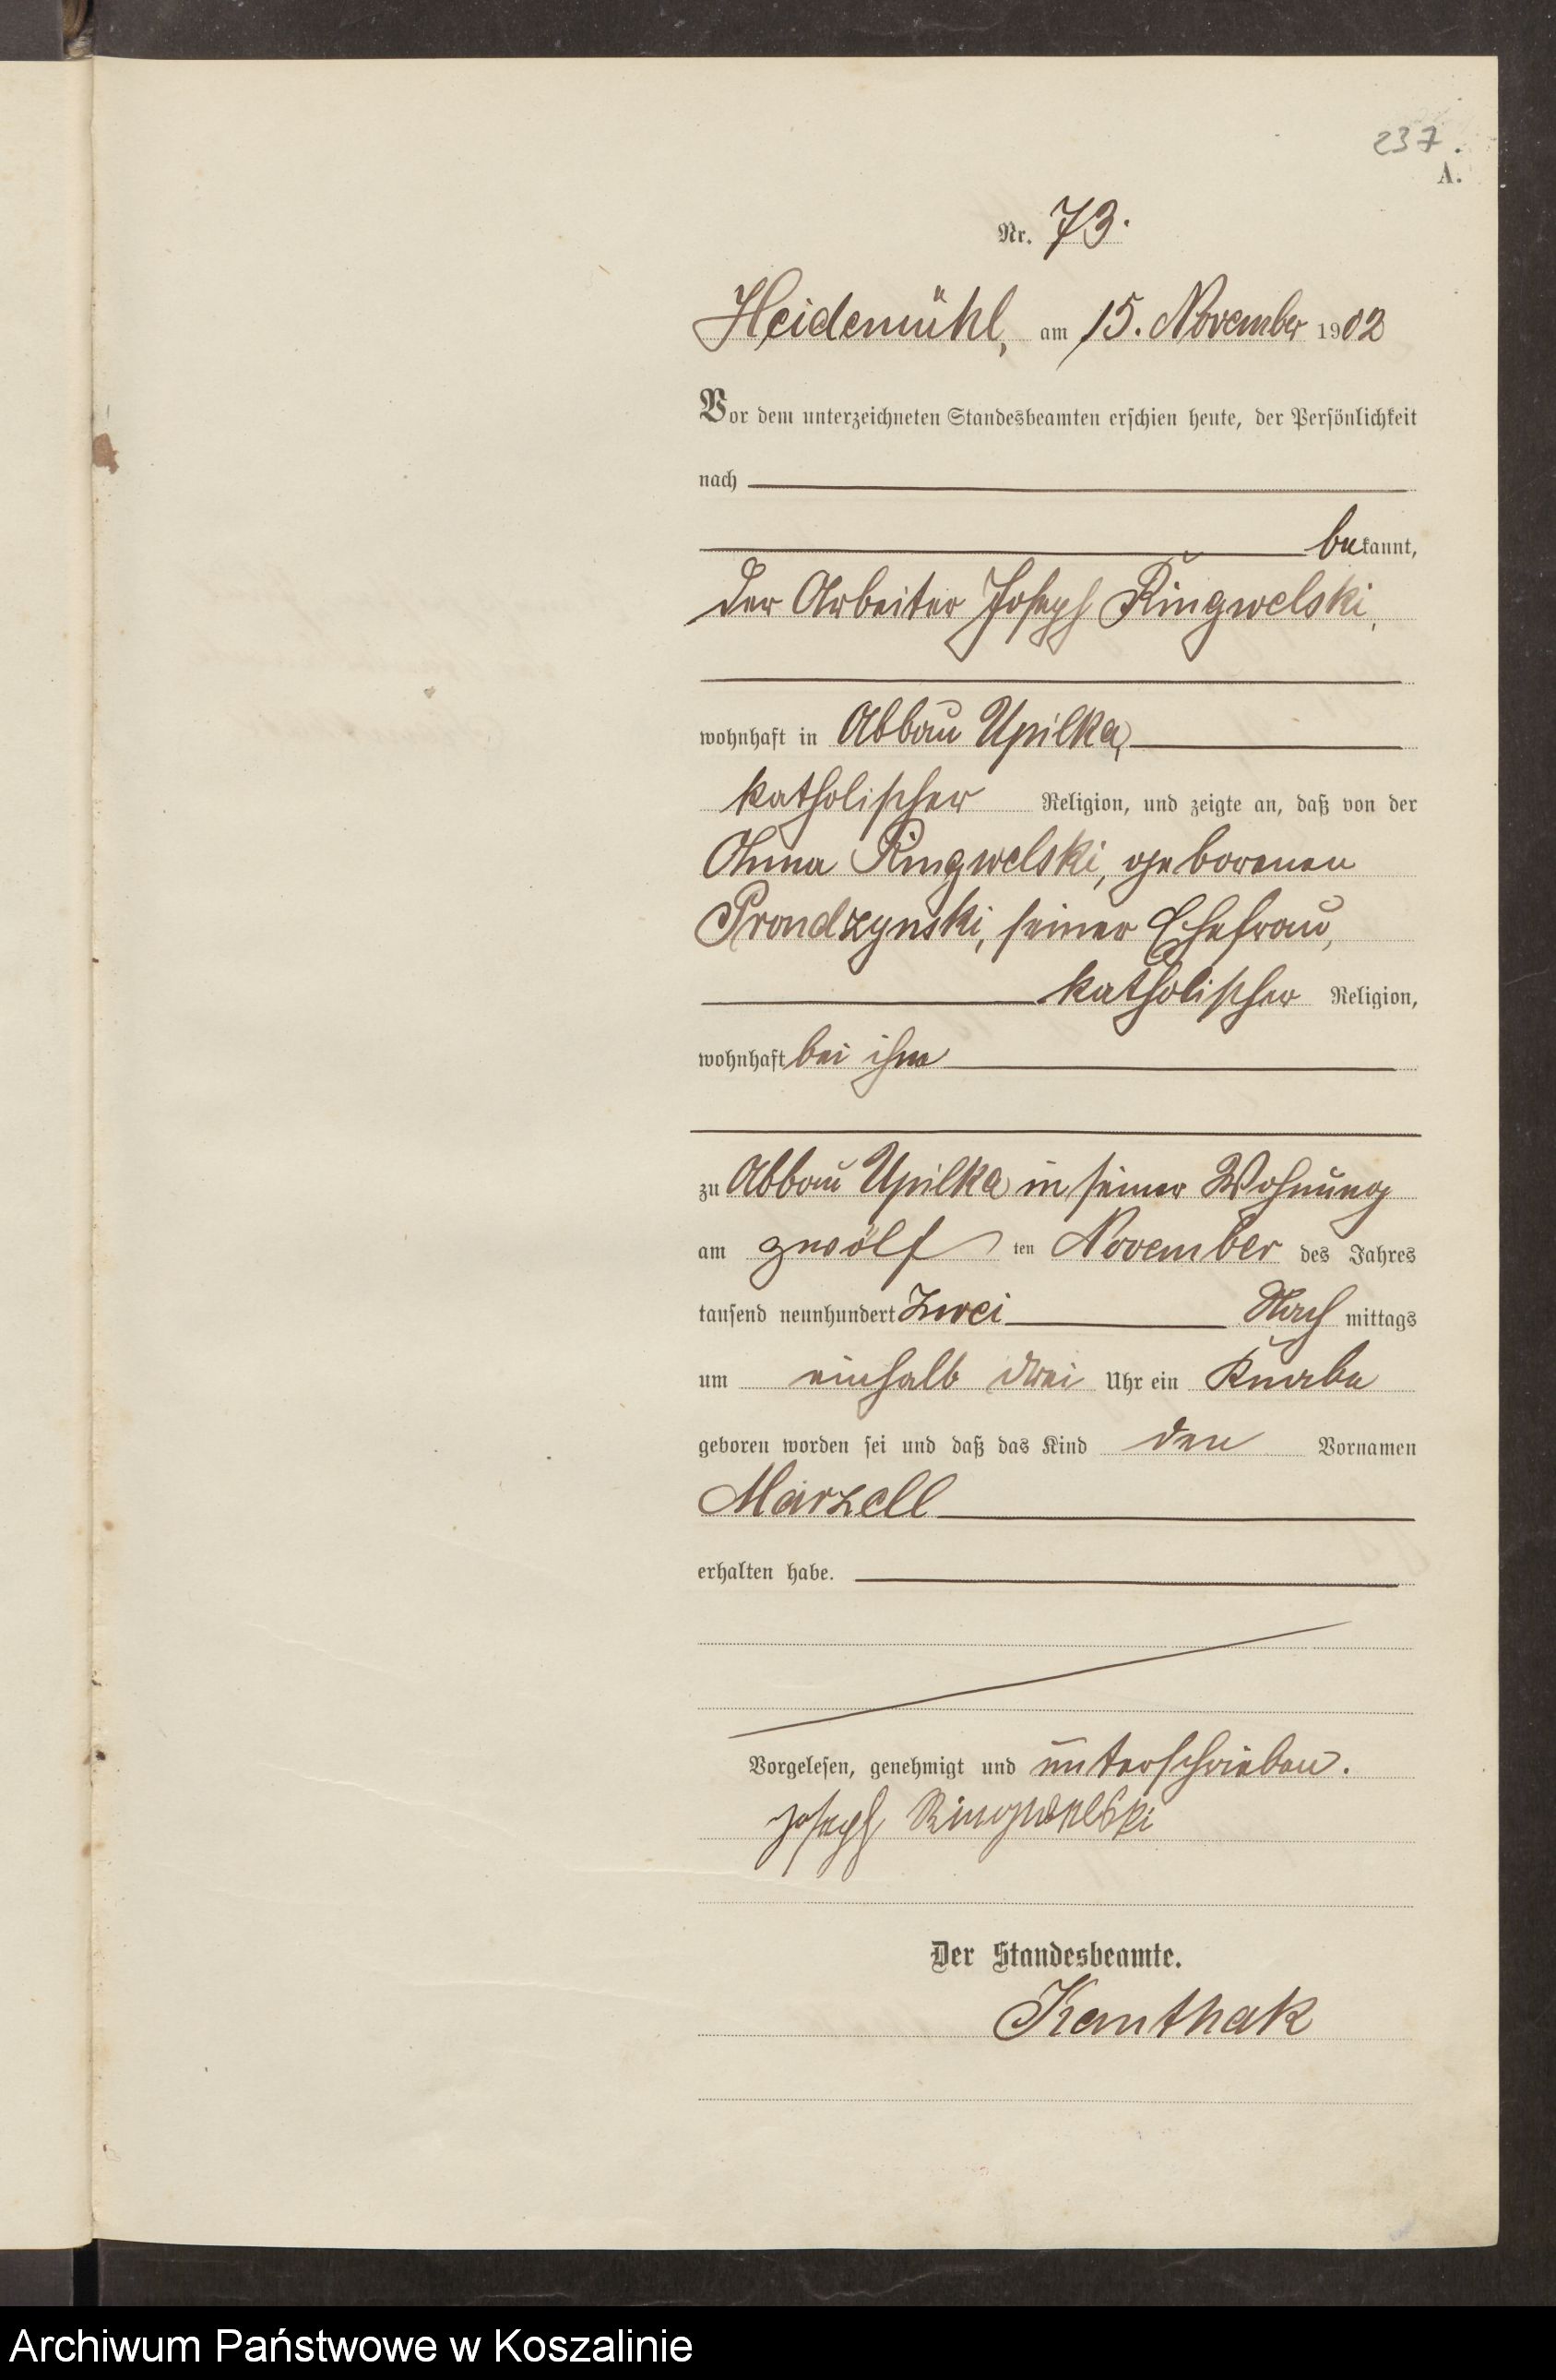 237.
A.
Nr. 73.
Heidemühl, am 15. November 1902
Vor dem unterzeichneten Standesbeamten erschien heute, der Persönlichkeit
nach
bekannt,
der Arbeiter Joseph Ringwelski,
wohnhaft in Abbau Upilka,
katholischer Religion, und zeigte an, daß von der
Anna Ringwelski, geborenen
Prondzynski, seiner Ehefrau,
katholischer Religion,
wohnhaft bei ihm
zu Abbau Upilka in seiner Wohnung
am zwölf ten November des Jahres
tausend neunhundert zwei Nach mittags
um einhalb drei Uhr ein Knabe
geboren worden sei und daß das Kind den Vornamen
Marzell
erhalten habe.
Vorgelesen, genehmigt und unterschrieben.
Joseph Ringwelski
Der Standesbeamte.
Kanthak
Archiwum Państwowe w Koszalinie